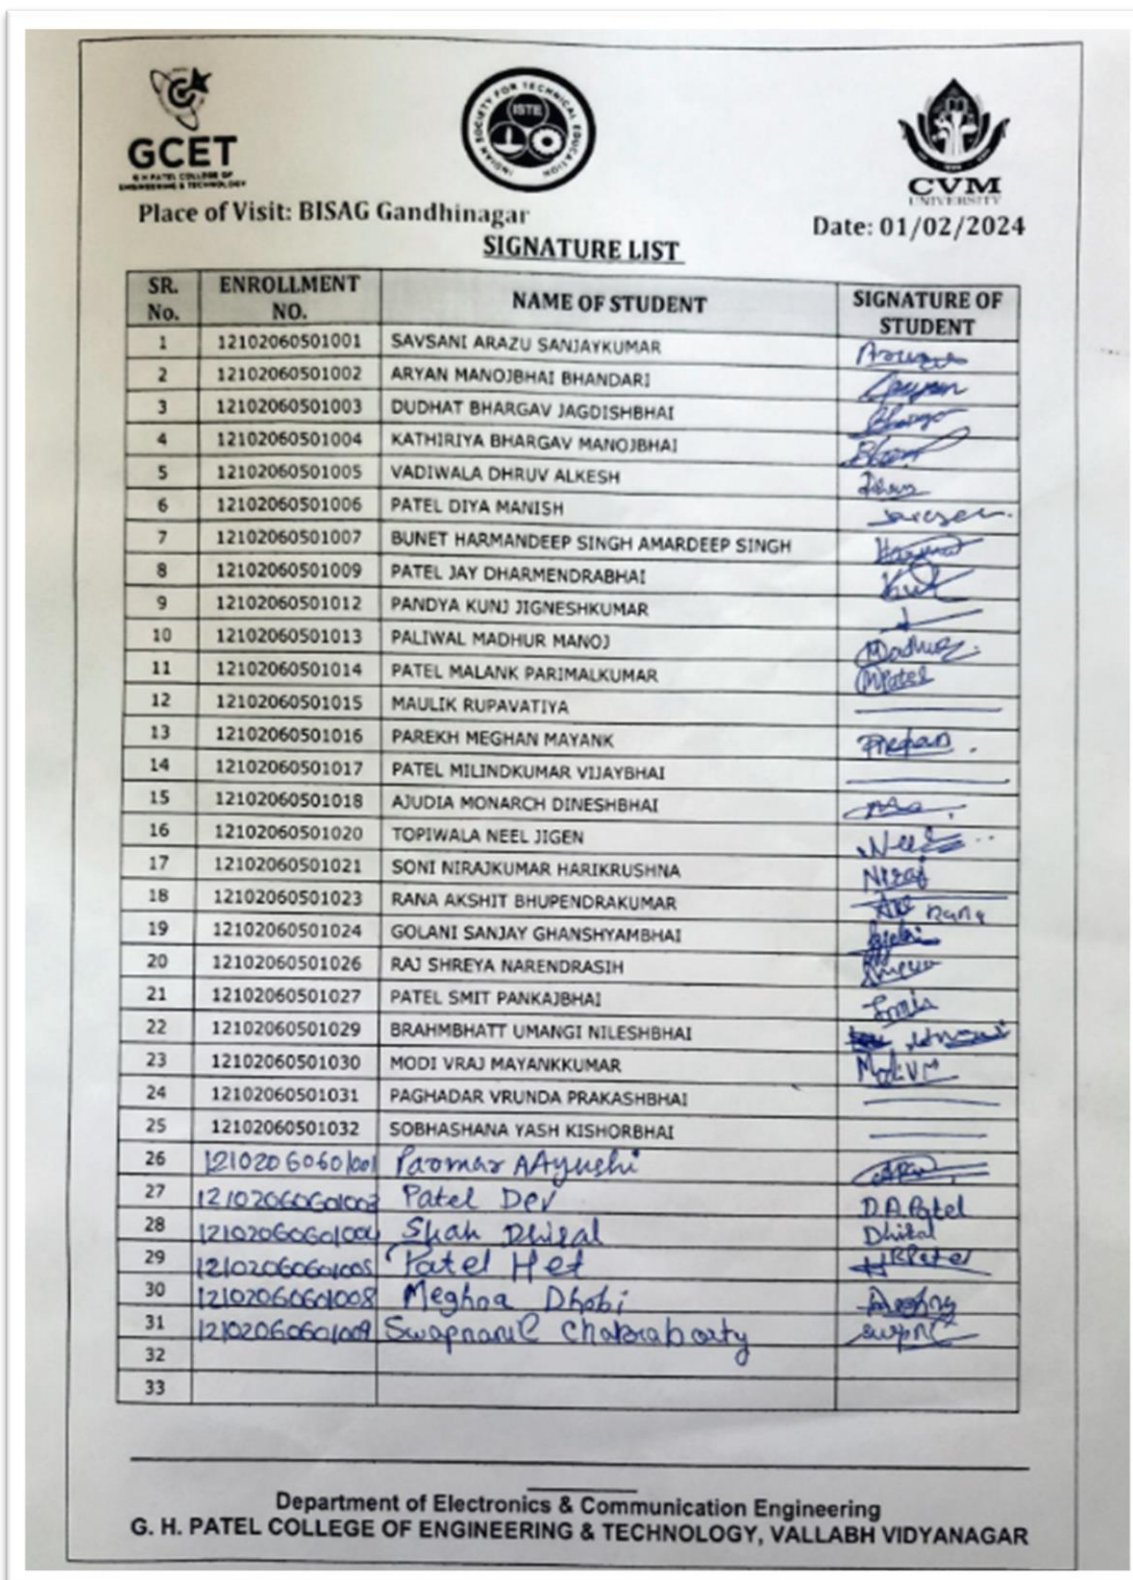 GCET
G H PATEL COLLEGE OF
ENGINEERING & TECHNOLOGY
INDIAN SOCIETY FOR TECHNICAL EDUCATION
ISTE
CVM
UNIVERSITY
Place of Visit: BISAG Gandhinagar
Date: 01/02/2024
SIGNATURE LIST
SR. No. ENROLLMENT NO. NAME OF STUDENT SIGNATURE OF STUDENT
1 12102060501001 SAVSANI ARAZU SANJAYKUMAR
2 12102060501002 ARYAN MANOJBHAI BHANDARI
3 12102060501003 DUDHAT BHARGAV JAGDISHBHAI
4 12102060501004 KATHIRIYA BHARGAV MANOJBHAI
5 12102060501005 VADIWALA DHRUV ALKESH
6 12102060501006 PATEL DIYA MANISH
7 12102060501007 BUNET HARMANDEEP SINGH AMARDEEP SINGH
8 12102060501009 PATEL JAY DHARMENDRABHAI
9 12102060501012 PANDYA KUNJ JIGNESHKUMAR
10 12102060501013 PALIWAL MADHUR MANOJ Madhur
11 12102060501014 PATEL MALANK PARIMALKUMAR MPatel
12 12102060501015 MAULIK RUPAVATIYA
13 12102060501016 PAREKH MEGHAN MAYANK
14 12102060501017 PATEL MILINDKUMAR VIJAYBHAI
15 12102060501018 AJUDIA MONARCH DINESHBHAI
16 12102060501020 TOPIWALA NEEL JIGEN Neel
17 12102060501021 SONI NIRAJKUMAR HARIKRUSHNA Niraj
18 12102060501023 RANA AKSHIT BHUPENDRAKUMAR Rana
19 12102060501024 GOLANI SANJAY GHANSHYAMBHAI
20 12102060501026 RAJ SHREYA NARENDRASIH
21 12102060501027 PATEL SMIT PANKAJBHAI
22 12102060501029 BRAHMBHATT UMANGI NILESHBHAI
23 12102060501030 MODI VRAJ MAYANKKUMAR Modi VM
24 12102060501031 PAGHADAR VRUNDA PRAKASHBHAI
25 12102060501032 SOBHASHANA YASH KISHORBHAI
26 12102060601001 Parmar AAyushi
27 12102060601003 Patel Dev D.A.Patel
28 12102060601004 Shah Dhiral Dhiral
29 12102060601005 Patel Het HRPatel
30 12102060601008 Meghna Dhobi Meghna
31 12102060601009 Swapnanil Chakraborty
32
33
Department of Electronics & Communication Engineering
G. H. PATEL COLLEGE OF ENGINEERING & TECHNOLOGY, VALLABH VIDYANAGAR